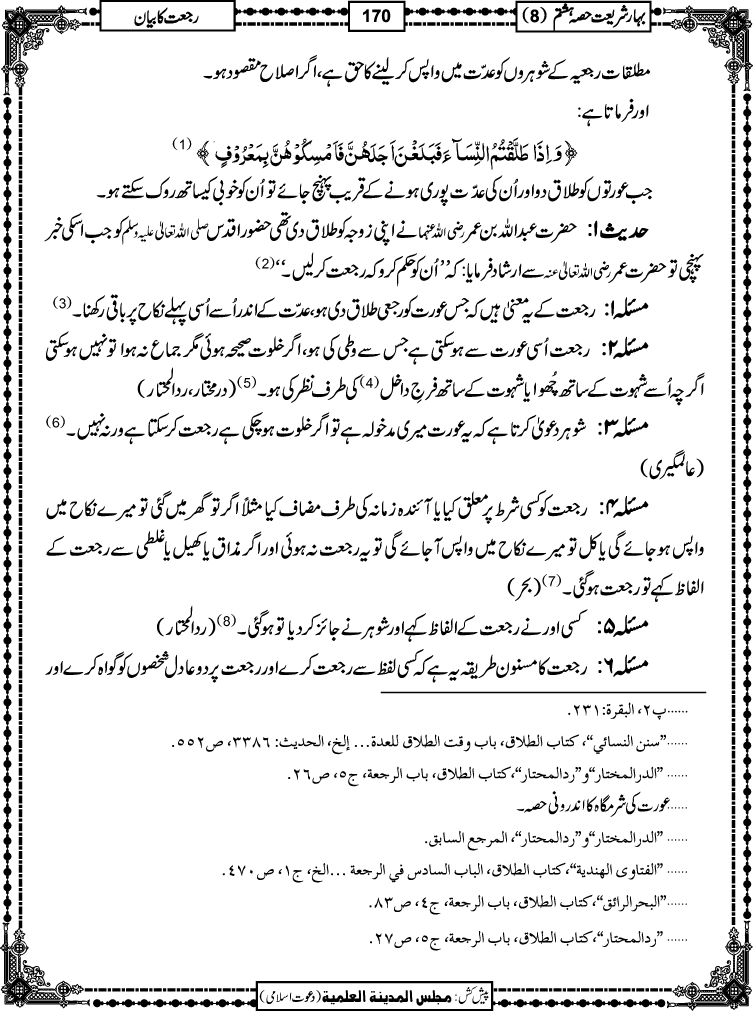 بہارِ شریعت حصہ ہشتم (8)
170
رجعت کا بیان
مطلقات رجعیہ کے شوہروں کو عدّت میں واپس کر لینے کا حق ہے، اگر اصلاح مقصود ہو۔
اور فرماتا ہے:
﴿ وَ اِذَا طَلَّقْتُمُ النِّسَآءَ فَبَلَغْنَ اَجَلَهُنَّ فَاَمْسِكُوْهُنَّ بِمَعْرُوْفٍ ﴾ (1)
جب عورتوں کو طلاق دو اور اُن کی عدّت پوری ہونے کے قریب پہنچ جائے تو اُن کو خوبی کیساتھ روک سکتے ہو۔
حدیث ۱: حضرت عبداللہ بن عمر رضی اللہ عنہما نے اپنی زوجہ کو طلاق دی تھی حضور اقدس صلی اللہ تعالیٰ علیہ وسلم کو جب اسکی خبر
پہنچی تو حضرت عمر رضی اللہ تعالیٰ عنہ سے ارشاد فرمایا: کہ ’’اُن کو حکم کرو کہ رجعت کر لیں۔‘‘ (2)
مسئلہ ۱: رجعت کے یہ معنیٰ ہیں کہ جس عورت کو رجعی طلاق دی ہو، عدّت کے اندر اُسے اُسی پہلے نکاح پر باقی رکھنا۔ (3)
مسئلہ ۲: رجعت اُسی عورت سے ہو سکتی ہے جس سے وطی کی ہو، اگر خلوت صحیحہ ہوئی مگر جماع نہ ہوا تو نہیں ہو سکتی
اگرچہ اُسے شہوت کے ساتھ چُھوا یا شہوت کے ساتھ فرجِ داخل (4) کی طرف نظر کی ہو۔ (5) (درمختار، ردالمحتار)
مسئلہ ۳: شوہر دعویٰ کرتا ہے کہ یہ عورت میری مدخولہ ہے تو اگر خلوت ہو چکی ہے رجعت کر سکتا ہے ورنہ نہیں۔ (6)
(عالمگیری)
مسئلہ ۴: رجعت کو کسی شرط پر معلق کیا یا آئندہ زمانہ کی طرف مضاف کیا مثلاً اگر تو گھر میں گئی تو میرے نکاح میں
واپس ہو جائے گی یا کل تو میرے نکاح میں واپس آ جائے گی تو یہ رجعت نہ ہوئی اور اگر مذاق یا کھیل یا غلطی سے رجعت کے
الفاظ کہے تو رجعت ہو گئی۔ (7) (بحر)
مسئلہ ۵: کسی اور نے رجعت کے الفاظ کہے اور شوہر نے جائز کر دیا تو ہو گئی۔ (8) (ردالمحتار)
مسئلہ ۶: رجعت کا مسنون طریقہ یہ ہے کہ کسی لفظ سے رجعت کرے اور رجعت پر دو عادل شخصوں کو گواہ کرے اور
......پ۲، البقرة: ۲۳۱.
......”سنن النسائي“، كتاب الطلاق، باب وقت الطلاق للعدة... إلخ، الحديث: ۳۳۸٦، ص۵۵۲.
...... ”الدرالمختار“و”ردالمحتار“،كتاب الطلاق، باب الرجعة، ج۵، ص۲٦.
......عورت کی شرمگاہ کا اندرونی حصہ۔
...... ”الدرالمختار“و”ردالمحتار“، المرجع السابق.
...... ”الفتاوى الهندية“،كتاب الطلاق، الباب السادس في الرجعة ...الخ، ج۱، ص٤۷۰.
......”البحرالرائق“،كتاب الطلاق، باب الرجعة، ج٤، ص۸۳.
...... ”ردالمحتار“،كتاب الطلاق، باب الرجعة، ج۵، ص۲۷.
پیش کش: مجلس المدينة العلمية (دعوت اسلامی)